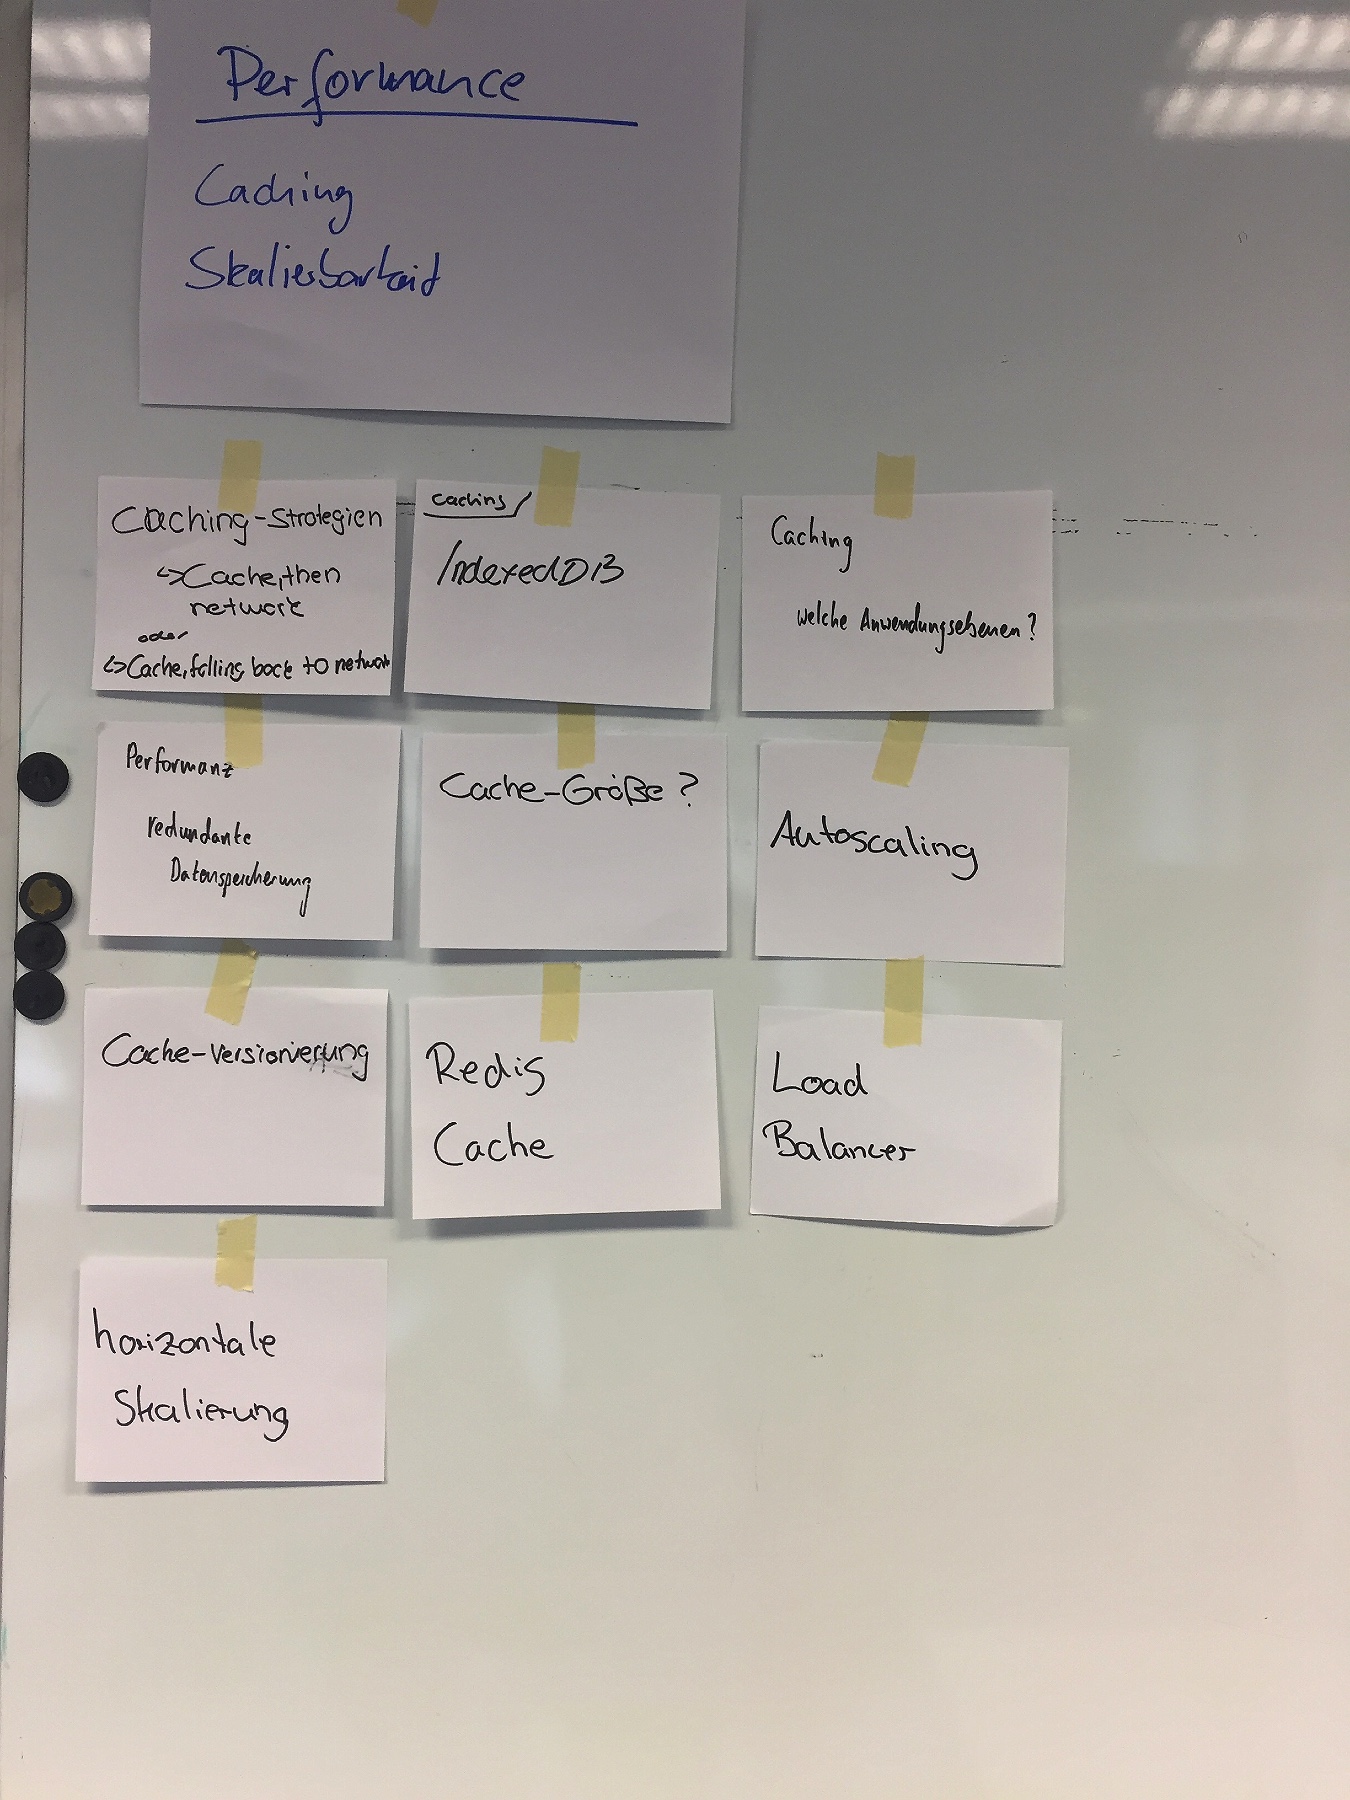 Performance
Caching
Skalierbarkeit
Caching-Strategien
↳Cache, then
network
oder
↳Cache, falling back to network
Caching
IndexedDB
Caching
welche Anwendungsebenen?
Performanz
redundante
Datenspeicherung
Cache-Größe?
Autoscaling
Cache-Versionierung
Redis
Cache
Load
Balancer
horizontale
Skalierung